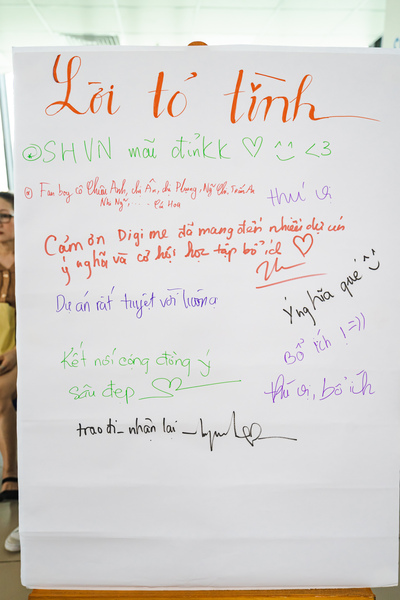 Lời tỏ tình
SHVN mãi đỉnkk ♡ <3
Fan boy cô Châu Anh, chị Ân, chị Phụng, Ngô Thị Trâm An
Như Ngũ, .... Cú Hoa
thú vị
Cảm ơn Digi me đã mang đến nhiều dự án
ý nghĩa và cơ hội học tập bổ ích ♡
Ý nghĩa quá
Dự án rất tuyệt vời luôn ạ
Bổ ích ! =))
Kết nối cộng đồng ý
sâu đẹp
thú vị, bổ ích
trao đi_nhận lại_